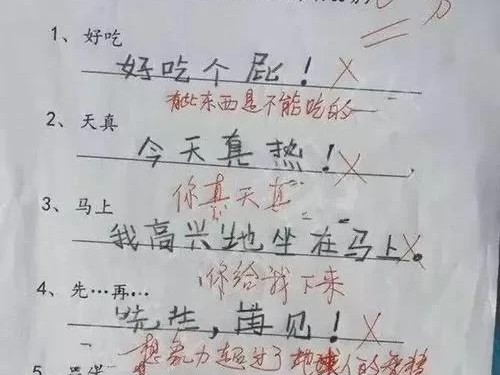 1、好吃
好吃个屁！
有些东西是不能吃的
2、天真
今天真热！
你真天真
3、马上
我高兴地坐在马上。
你给我下来
4、先…再…
先生，再见！
想象力超过了地球人的
5、